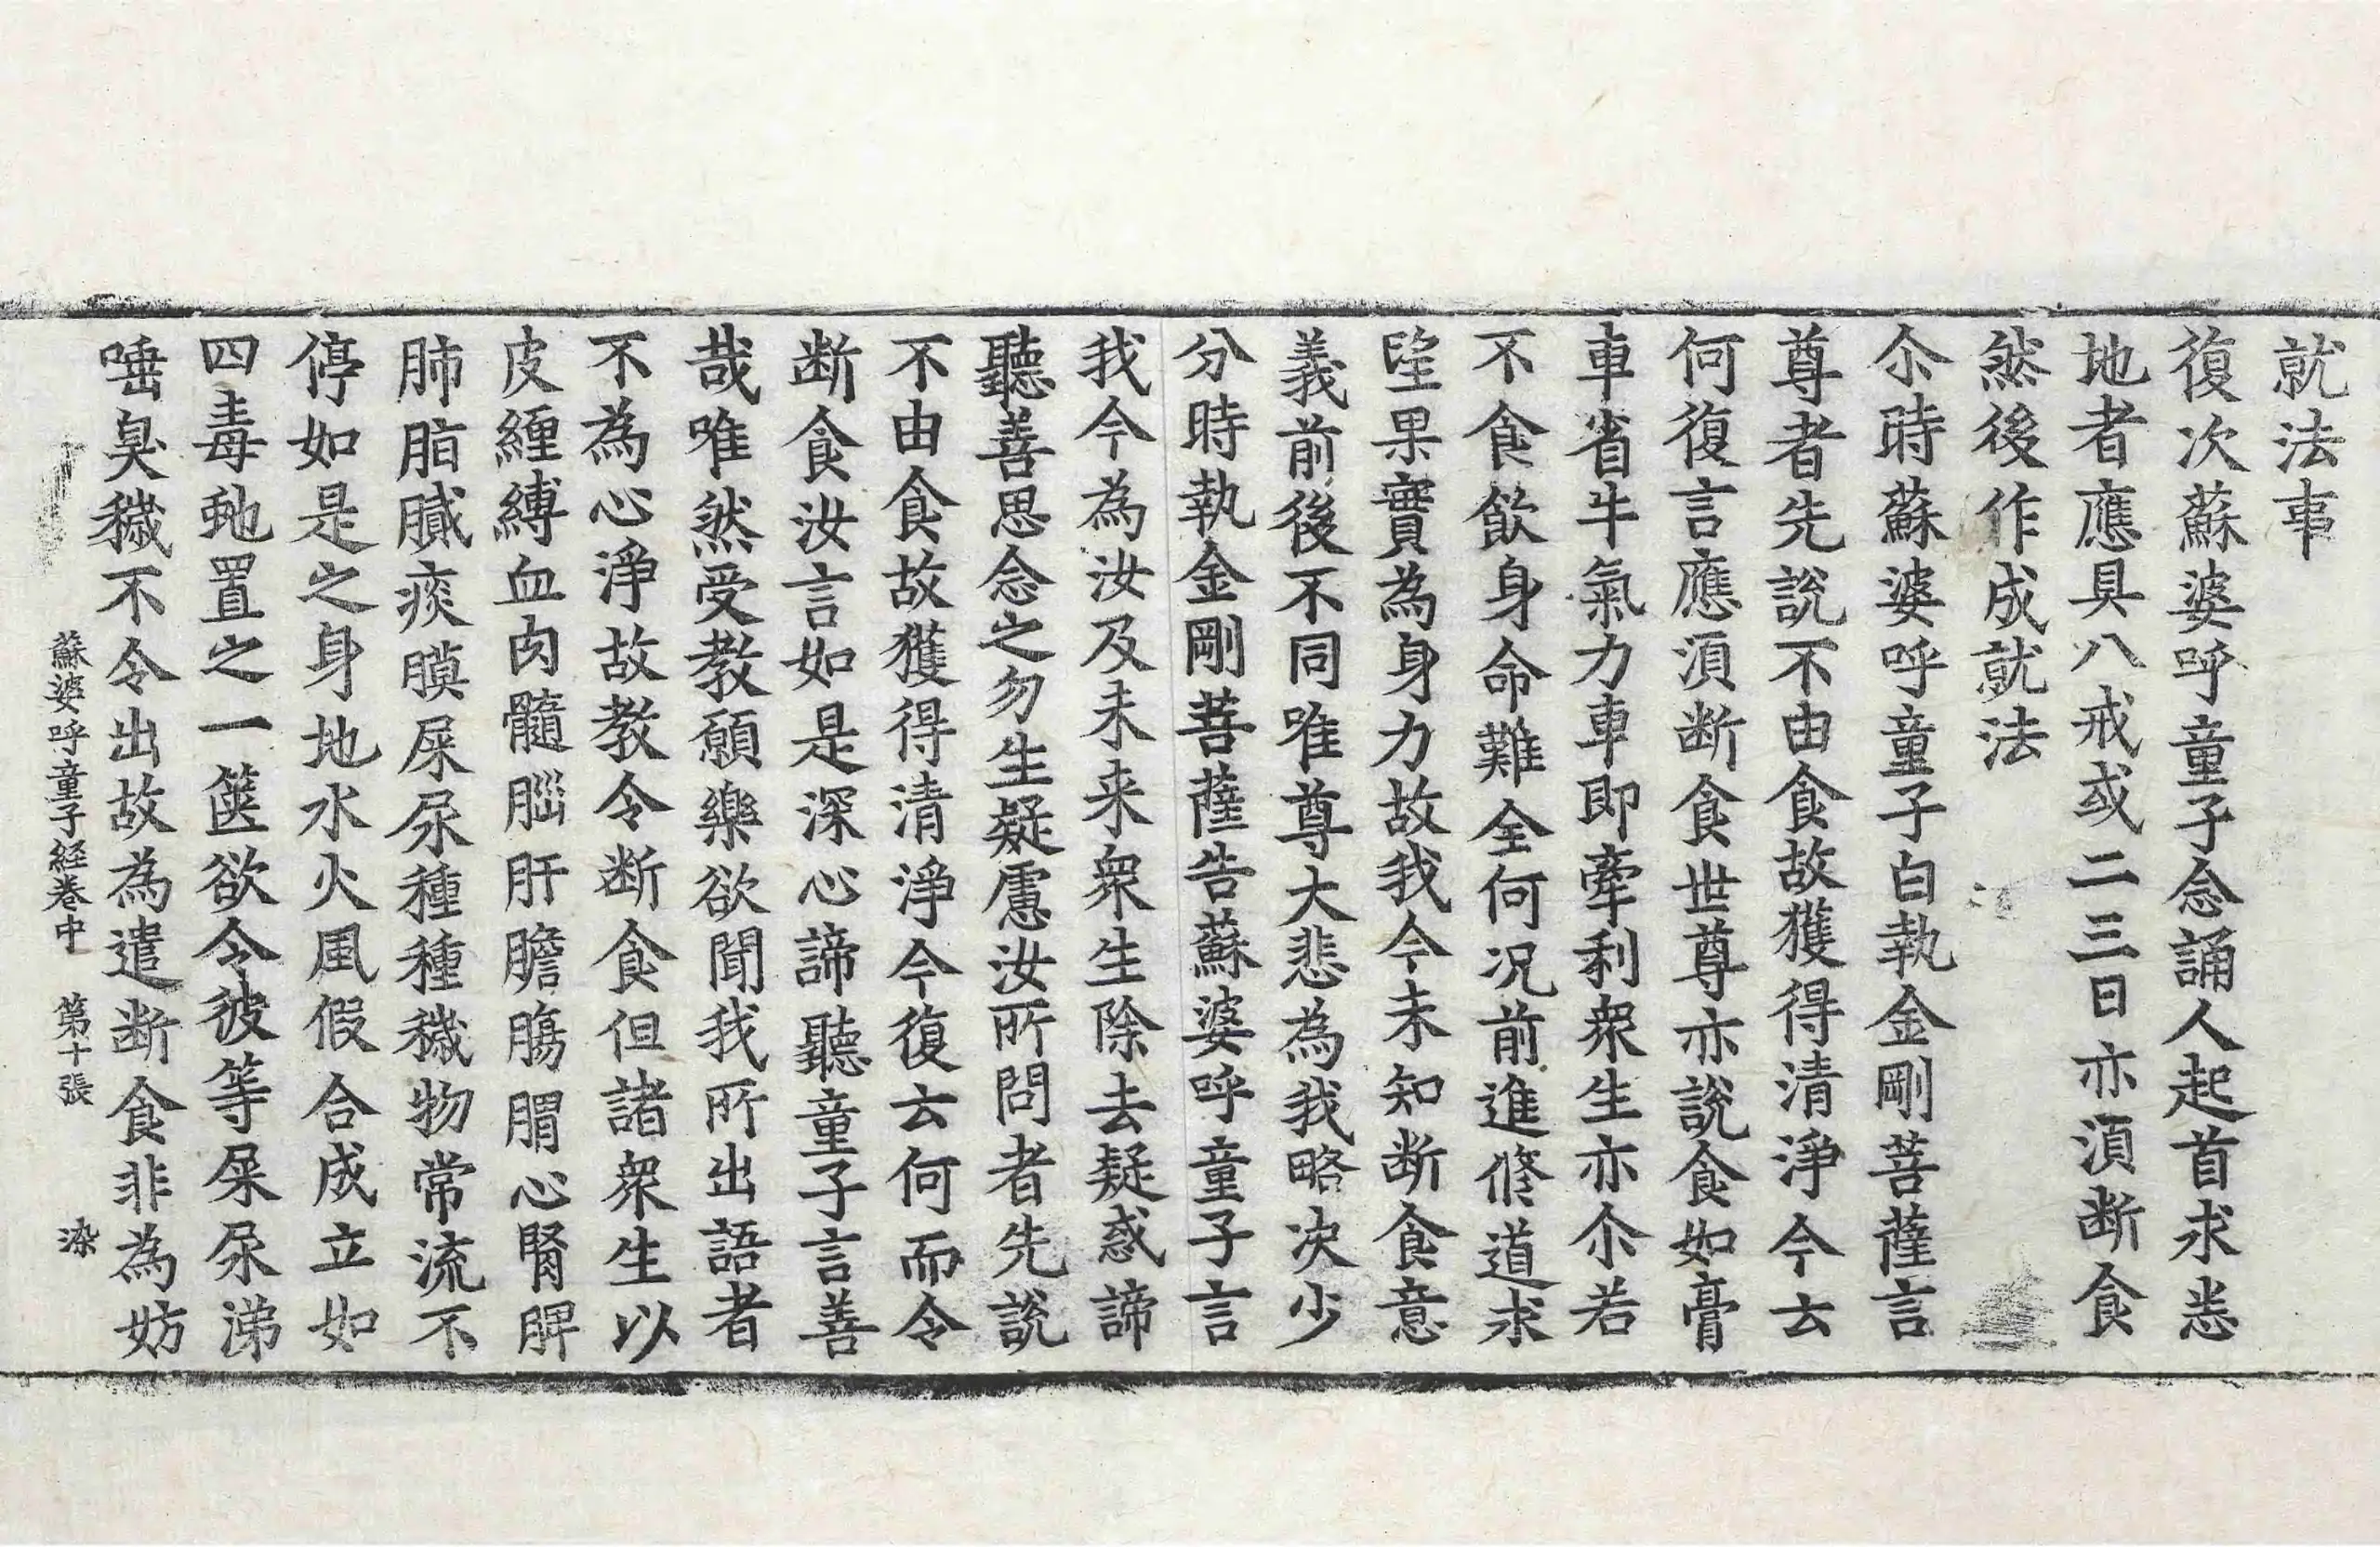 就法事
復次蘇婆呼童子念誦人起首求悉
地者應具八戒或二三日亦須断食
然後作成就法
尒時蘇婆呼童子白執金剛菩薩言
尊者先說不由食故獲得清淨今云
何復言應須断食世尊亦說食如膏
車省牛氣力車即牽利衆生亦尒若
不食飲身命難全何況前進修道求
望果實為身力故我今未知断食意
義前後不同唯尊大悲為我略决少
分時執金剛菩薩告蘇婆呼童子言
我今為汝及未来衆生除去疑惑諦
聽善思念之勿生疑慮汝所問者先說
不由食故獲得清淨今復云何而令
断食汝言如是深心諦聽童子言善
哉唯然受教願樂欲聞我所出語者
不為心淨故教令断食但諸衆生以
皮纏縛血肉髓腦肝膽腸胃心腎脾
肺脂膩痰膜屎尿種種穢物常流不
停如是之身地水火風假合成立如
四毒虵置之一篋欲令彼等屎尿涕
唾臭穢不令出故為遣断食非為妨
蘇婆呼童子経卷中 第十張 染